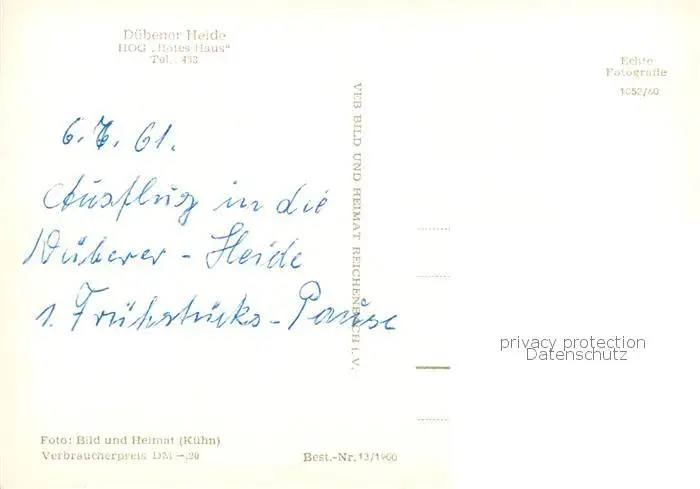 Dübener Heide
HOG „Rotes Haus"
Tel.: 433
Echte
Fotografie
1052/60
VEB BILD UND HEIMAT REICHENBACH i. V.
6. 7. 61.
Ausflug in die
Dübener - Heide
1. Frühstücks - Pause
privacy protection
Datenschutz
Foto: Bild und Heimat (Kühn)
Verbraucherpreis DM -,20
Best.-Nr. 13/1900